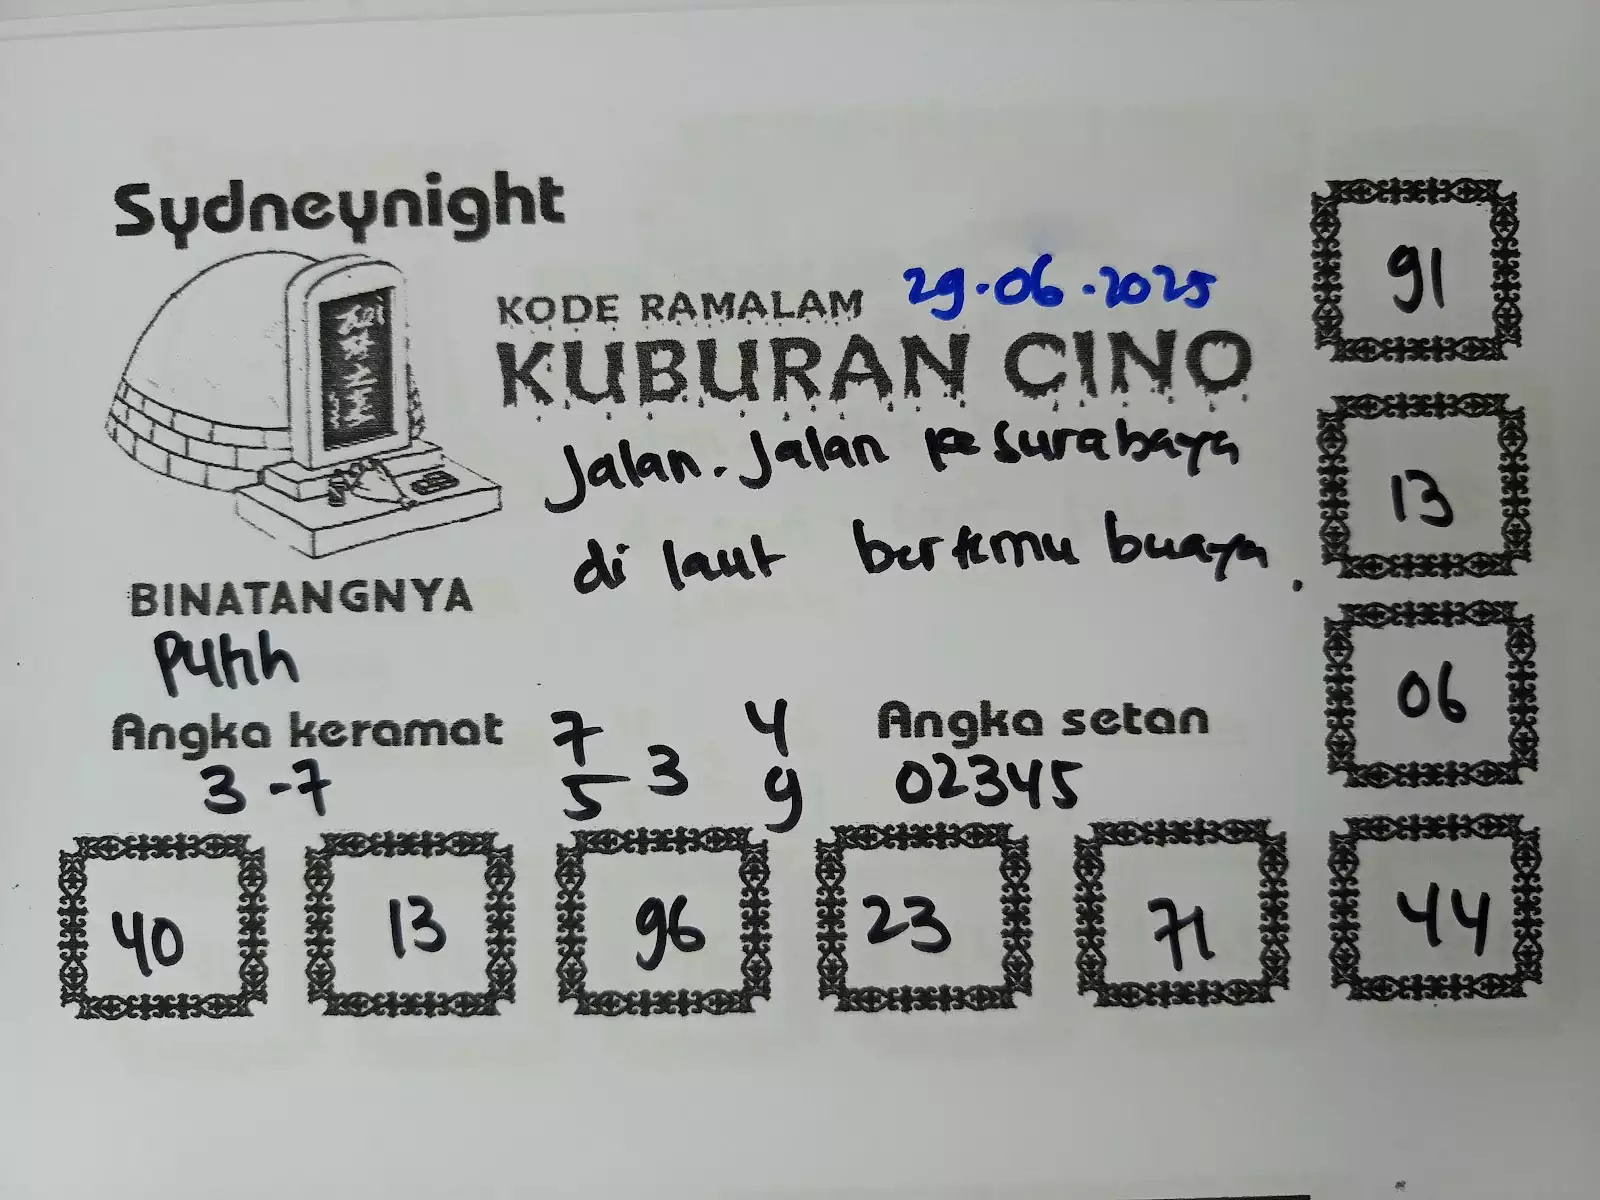 Sydneynight
KODE RAMALAM 29.06.2025
KUBURAN CINO
Jalan-Jalan ke Surabaya
di laut bertemu buaya.
BINATANGNYA
Angka keramat
3-7
7
5
3
4
9
Angka setan
02345
91
13
06
40
13
96
23
71
44